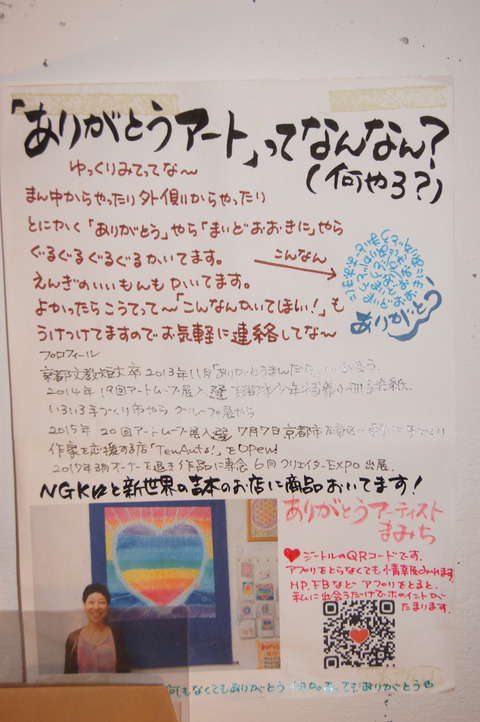 「ありがとうアート」ってなんなん?
(何やろ?)
ゆっくりみてってな〜
まん中からやったり外側からやったり
とにかく「ありがとう」やら「まいどおおきに」やら
ぐるぐるぐるぐるかいてます。
こんなん
えんぎのいいもんもかいてます。
よかったらこうてって〜「こんなんかいてほしい!」も
うけつけてますのでお気軽に連絡してな〜
ありがとう
プロフィール
京都文教短大卒 2013年11月
2014年 19回アートムーブ展入選
いろいろ手づくり市やら グループ展やら
2015年 20回アートムーブ展入選 7月7日京都市
作家を応援する店「TenArts!」をOpen!
2017年3月オーナーを退き作品に専念 6月クリエイターExpo 出展.
NGKロと新世界の吉本のお店に商品おいてます!
ありがとうアーティスト
まみち
ジートルのQRコードです.
アプリをとらなくても情報はみれます.
HP.FBなど アプリをとると.
私に出会うだけでポイントが
たまります.
何もなくてもありがとう 何かあってもありがとうや